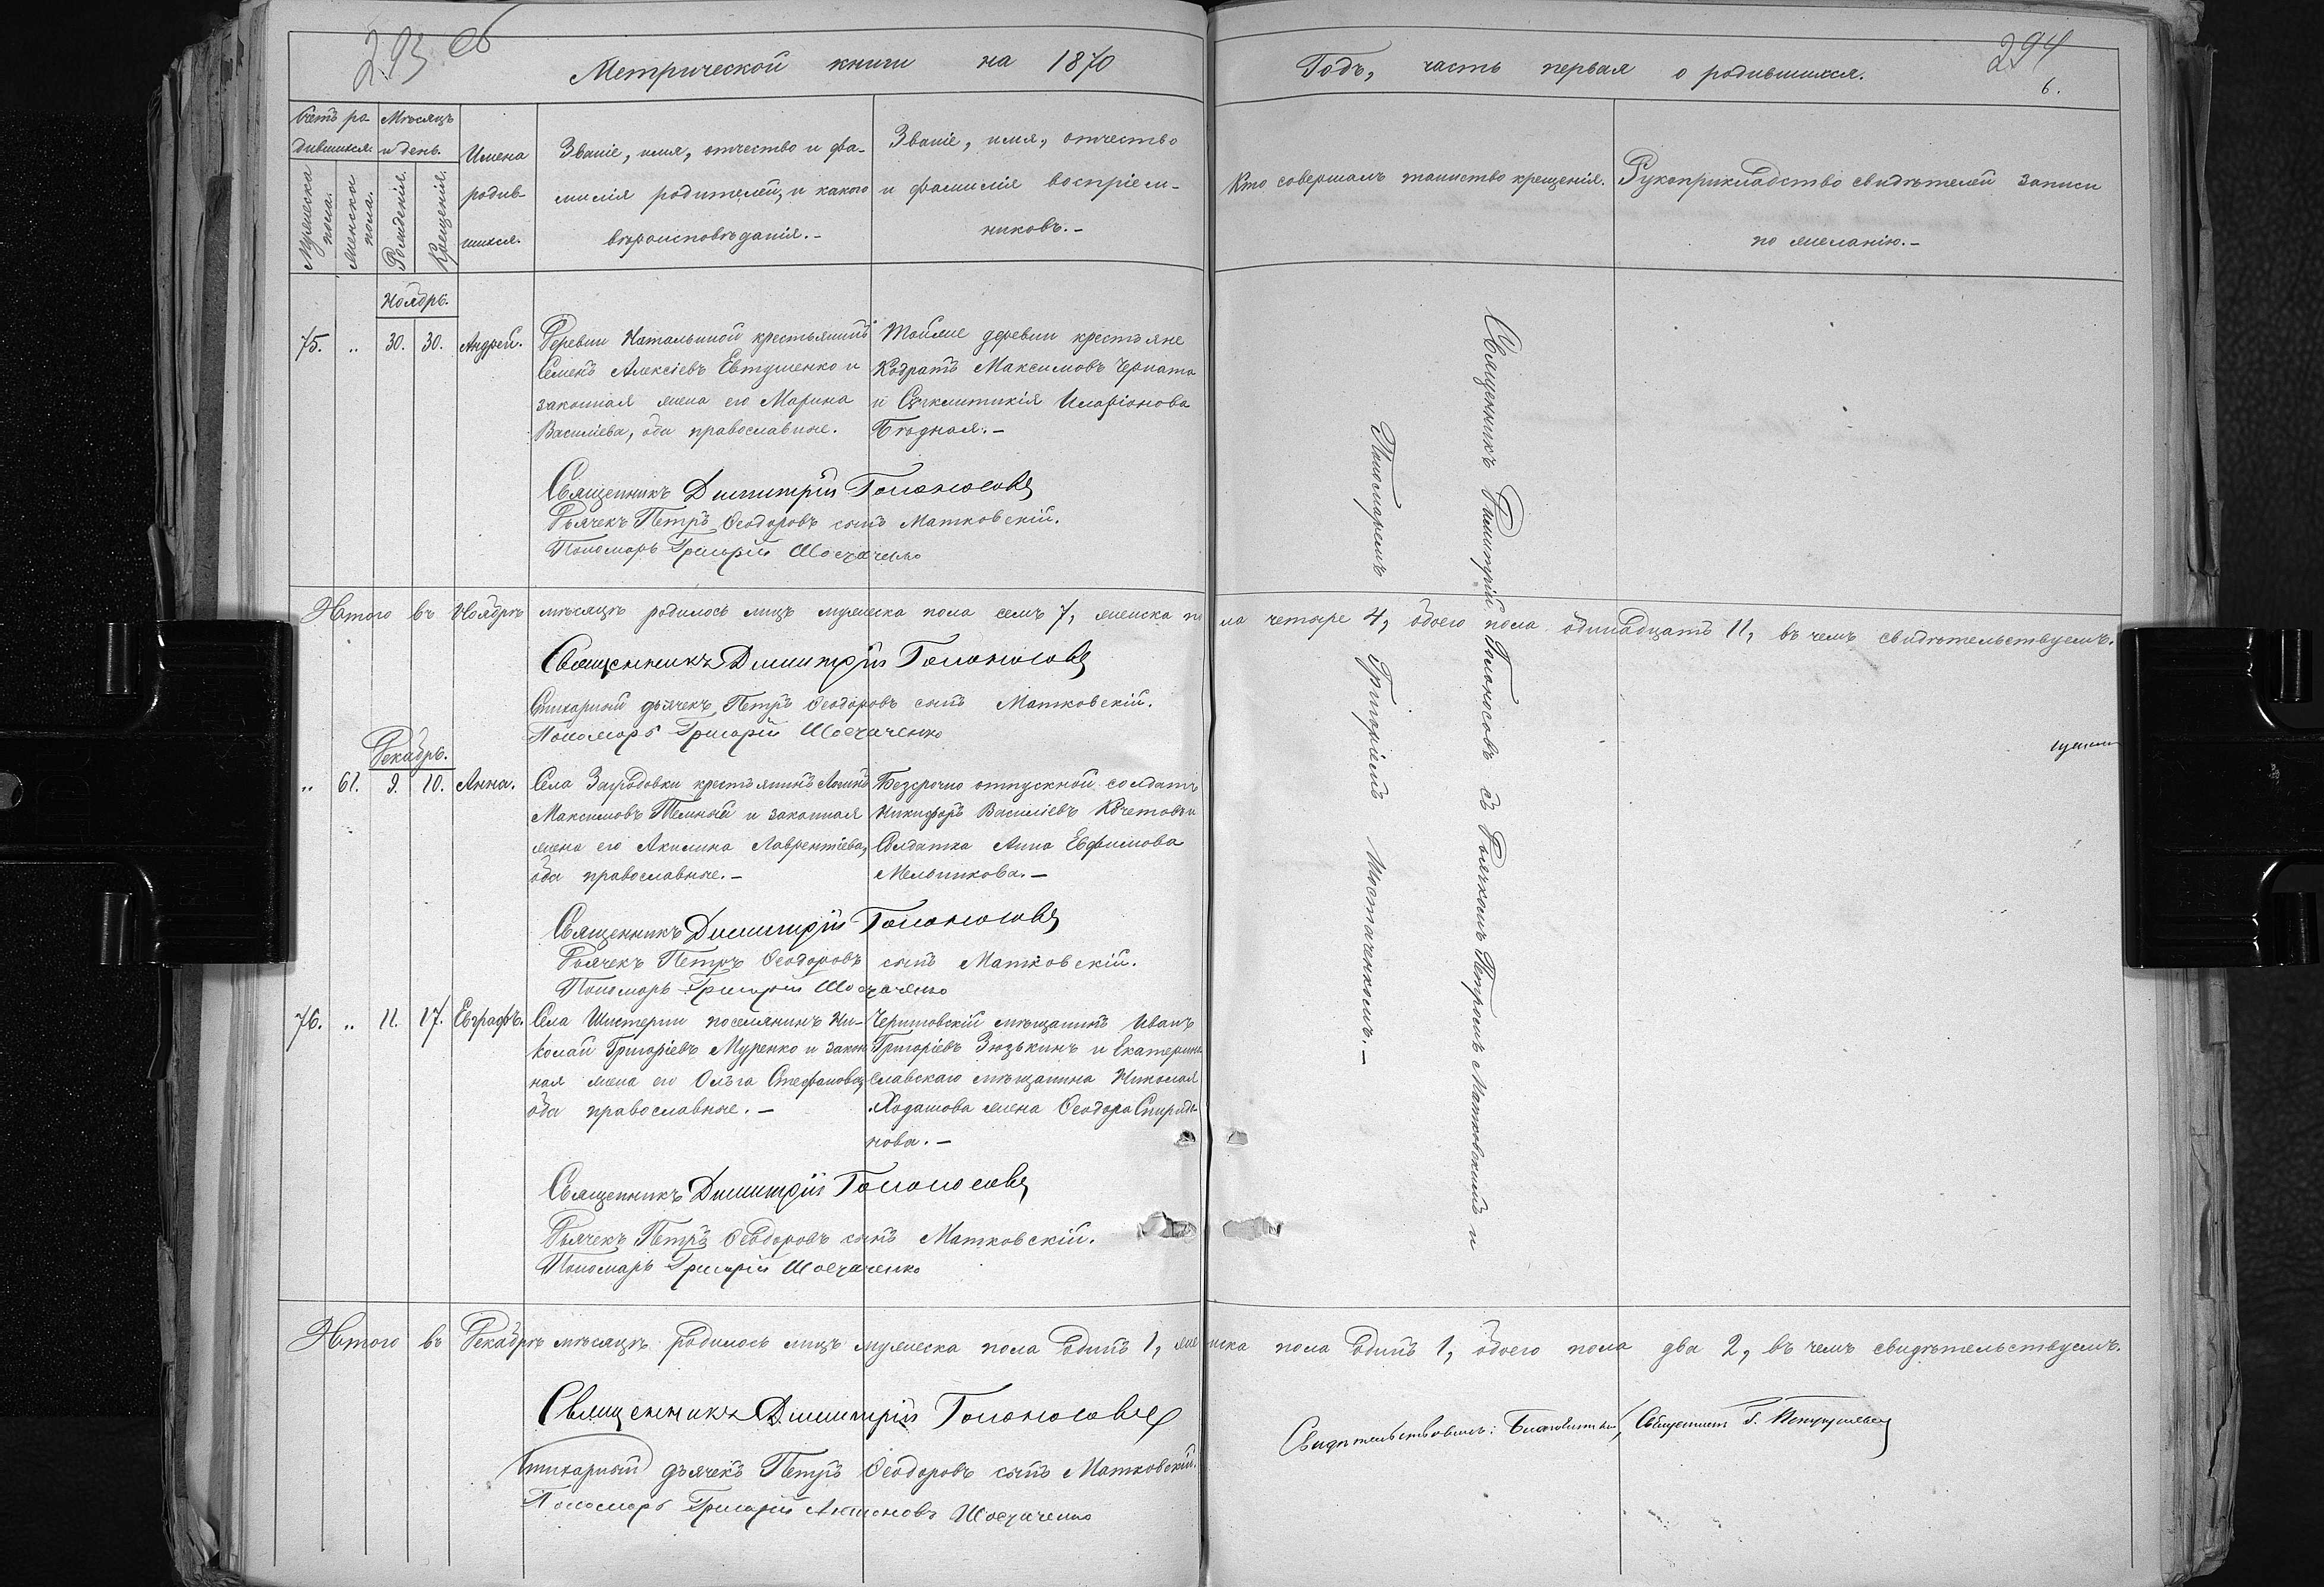 293 об
Метрической книги на 1870
Годъ, часть первая о родившихся.
294
6.
Счетъ ро-
дившихся.
Мѣсяцъ
и день.
Мужеска
пола.
Женска
пола.
Рожденія.
Крещенія.
Имена
родив-
шихся.
Званіе, имя, отчество и фа-
милія родителей, и какого
вѣроисповѣданія.-
Званіе, имя, отчество
и фамилія воспріем-
никовъ.-
Кто совершалъ таинство крещенія.
Рукоприкладство свидѣтелей записи
по желанію.-
Ноябрь.
75. „ 30. 30. Андрей.
Деревни Натальиной крестьянинъ
Семенъ Алексіевъ Евтушенко и
законная жена его Марина
Васильева, оба православные.
Тойже деревни крестьяне
Кодратъ Максимовъ Черната
и Сигклитикія Иларіонова
Бѣдная.-
Священникъ Димитрій Голоносовъ
Дьячекъ Петръ Ѳеодоровъ сынъ Матковскій.
Пономарь Григорій Шостаченко
Итого въ Ноябрѣ мѣсяцѣ родилось лицъ мужеска пола семь 7, женска пола четыре 4, обоего пола одинадцать 11, въ чемъ свидѣтельствуемъ.
Священникъ Димитрій Голоносовъ
Стихарный дьячекъ Петръ Ѳеодоровъ сынъ Матковскій.
Пономарь Григорій Шостаченко
Декабрь.
„ 61. 9. 10. Анна.
Села Заградовки крестьянинъ
Максимовъ Темный и законная
жена его Акилина Лаврентіева,
оба православные.-
Безсрочно отпускной солдатъ
Никифоръ Василіевъ Кочетовъ и
Солдатка Анна Евфимова
Мельникова.-
Священникъ Димитрій Голоносовъ
Дьячекъ Петръ Ѳеодоровъ сынъ Матковскій.
Пономарь Григорій Шостаченко
76. „ 11. 17. Евграфъ.
Села Шистерни поселянинъ Ни-
колай Григоріевъ Муренко и закон
ная жена его Ольга Стефанова,
оба православные.-
мѣщанинъ Иванъ
Григоріевъ Зюзькинъ и Екатерино
славскаго мѣщанина Николая
Ходашова жена Ѳеодора Спиридо-
нова.-
Священникъ Димитрій Голоносовъ
Дьячекъ Петръ Ѳеодоровъ сынъ Матковскій.
Пономарь Григорій Шостаченко
Итого въ Декабрѣ мѣсяцѣ родилось лицъ мужеска пола одинъ 1, женска пола одинъ 1, обоего пола два 2, въ чемъ свидѣтельствуемъ.
Священникъ Димитрій Голоносовъ
Стихарный дьячекъ Петръ Ѳеодоровъ сынъ Матковскій.
Пономарь Григорій Антоновъ Шостаченко
Священникъ Димитрій Голоносовъ съ Дьячкомъ Петромъ Матковскимъ и
Пономаремъ Григоріемъ Шостаченкомъ.-
Свидѣтельствовалъ: Благочинный, Священникъ Г.